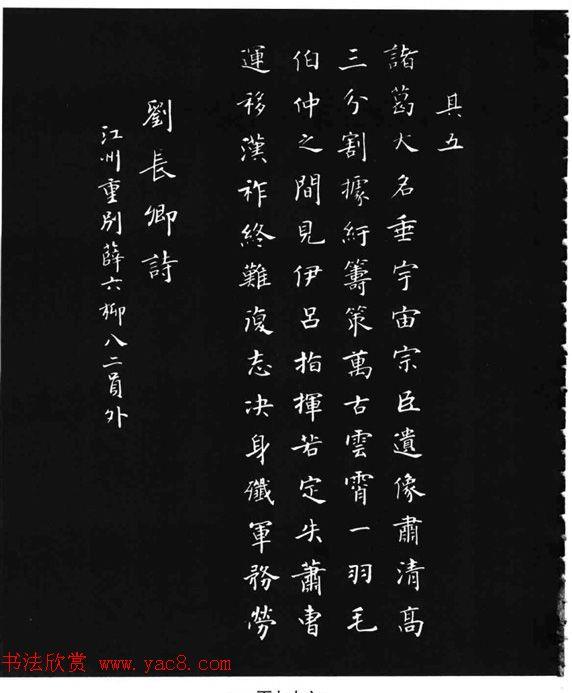 其五
諸葛大名垂宇宙宗臣遺像肅清高
三分割據紆籌策萬古雲霄一羽毛
伯仲之間見伊呂指揮若定失蕭曹
運移漢祚終難復志决身殲軍務勞
劉長卿詩
江州重别薛六柳八二員外
书法欣赏 www.yac8.com